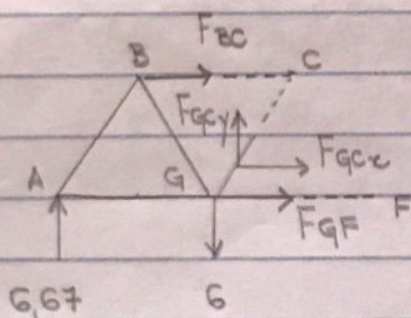 F BC
B
C
F GCy
F GCx
A
G
F GF
F
6,67
6